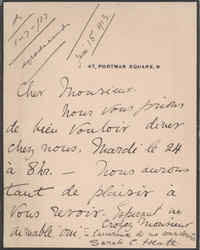 Jan 15 1913
47, PORTMAN SQUARE, W
Cher Monsieur
Nous vous prions
de bien vouloir diner
chez nous, Mardi le 24
à 8 hr. — Nous aurons
tant de plaisir à
vous revoir. Esperant une
aimable oui — Croyez Monsieur
Sarah C.